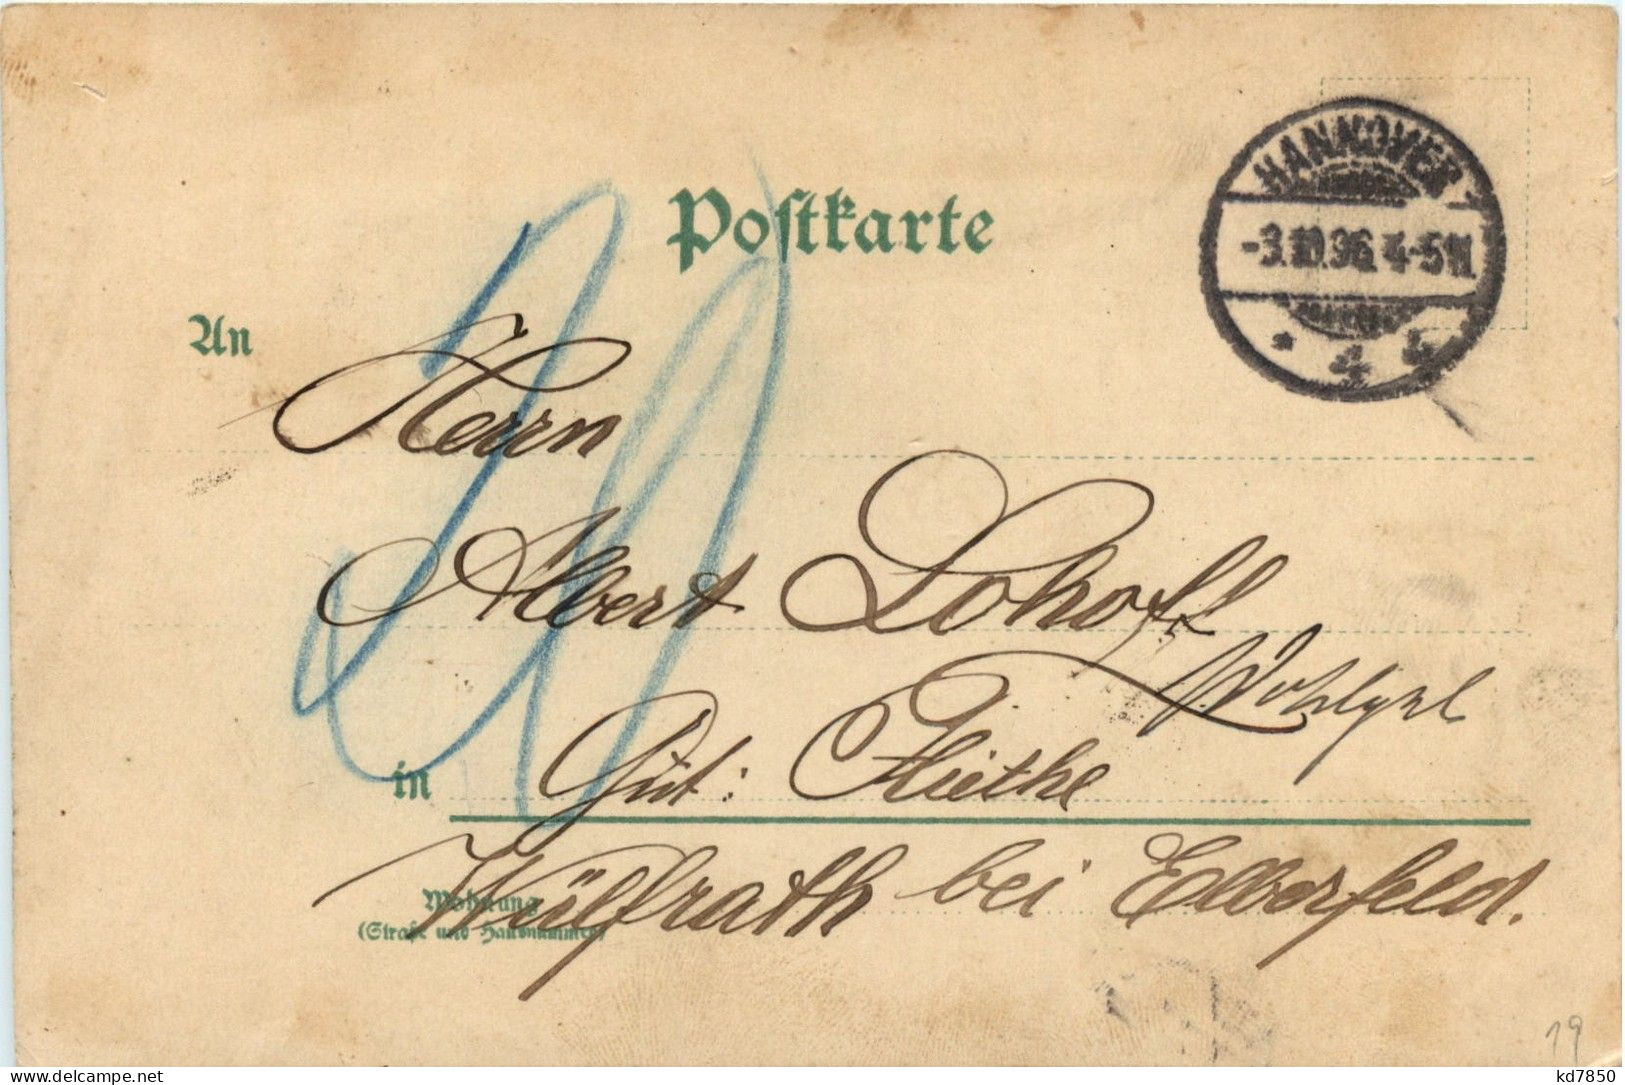 Postkarte
HANNOVER
-3.10.96. 4-5N.
* 4 b
An
Herrn
Albert Lohoff
Wohlgeb.
in Gut:
Wülfrath bei Elberfeld.
Wohnung
(Straße und Hausnummer)
19
kd7850